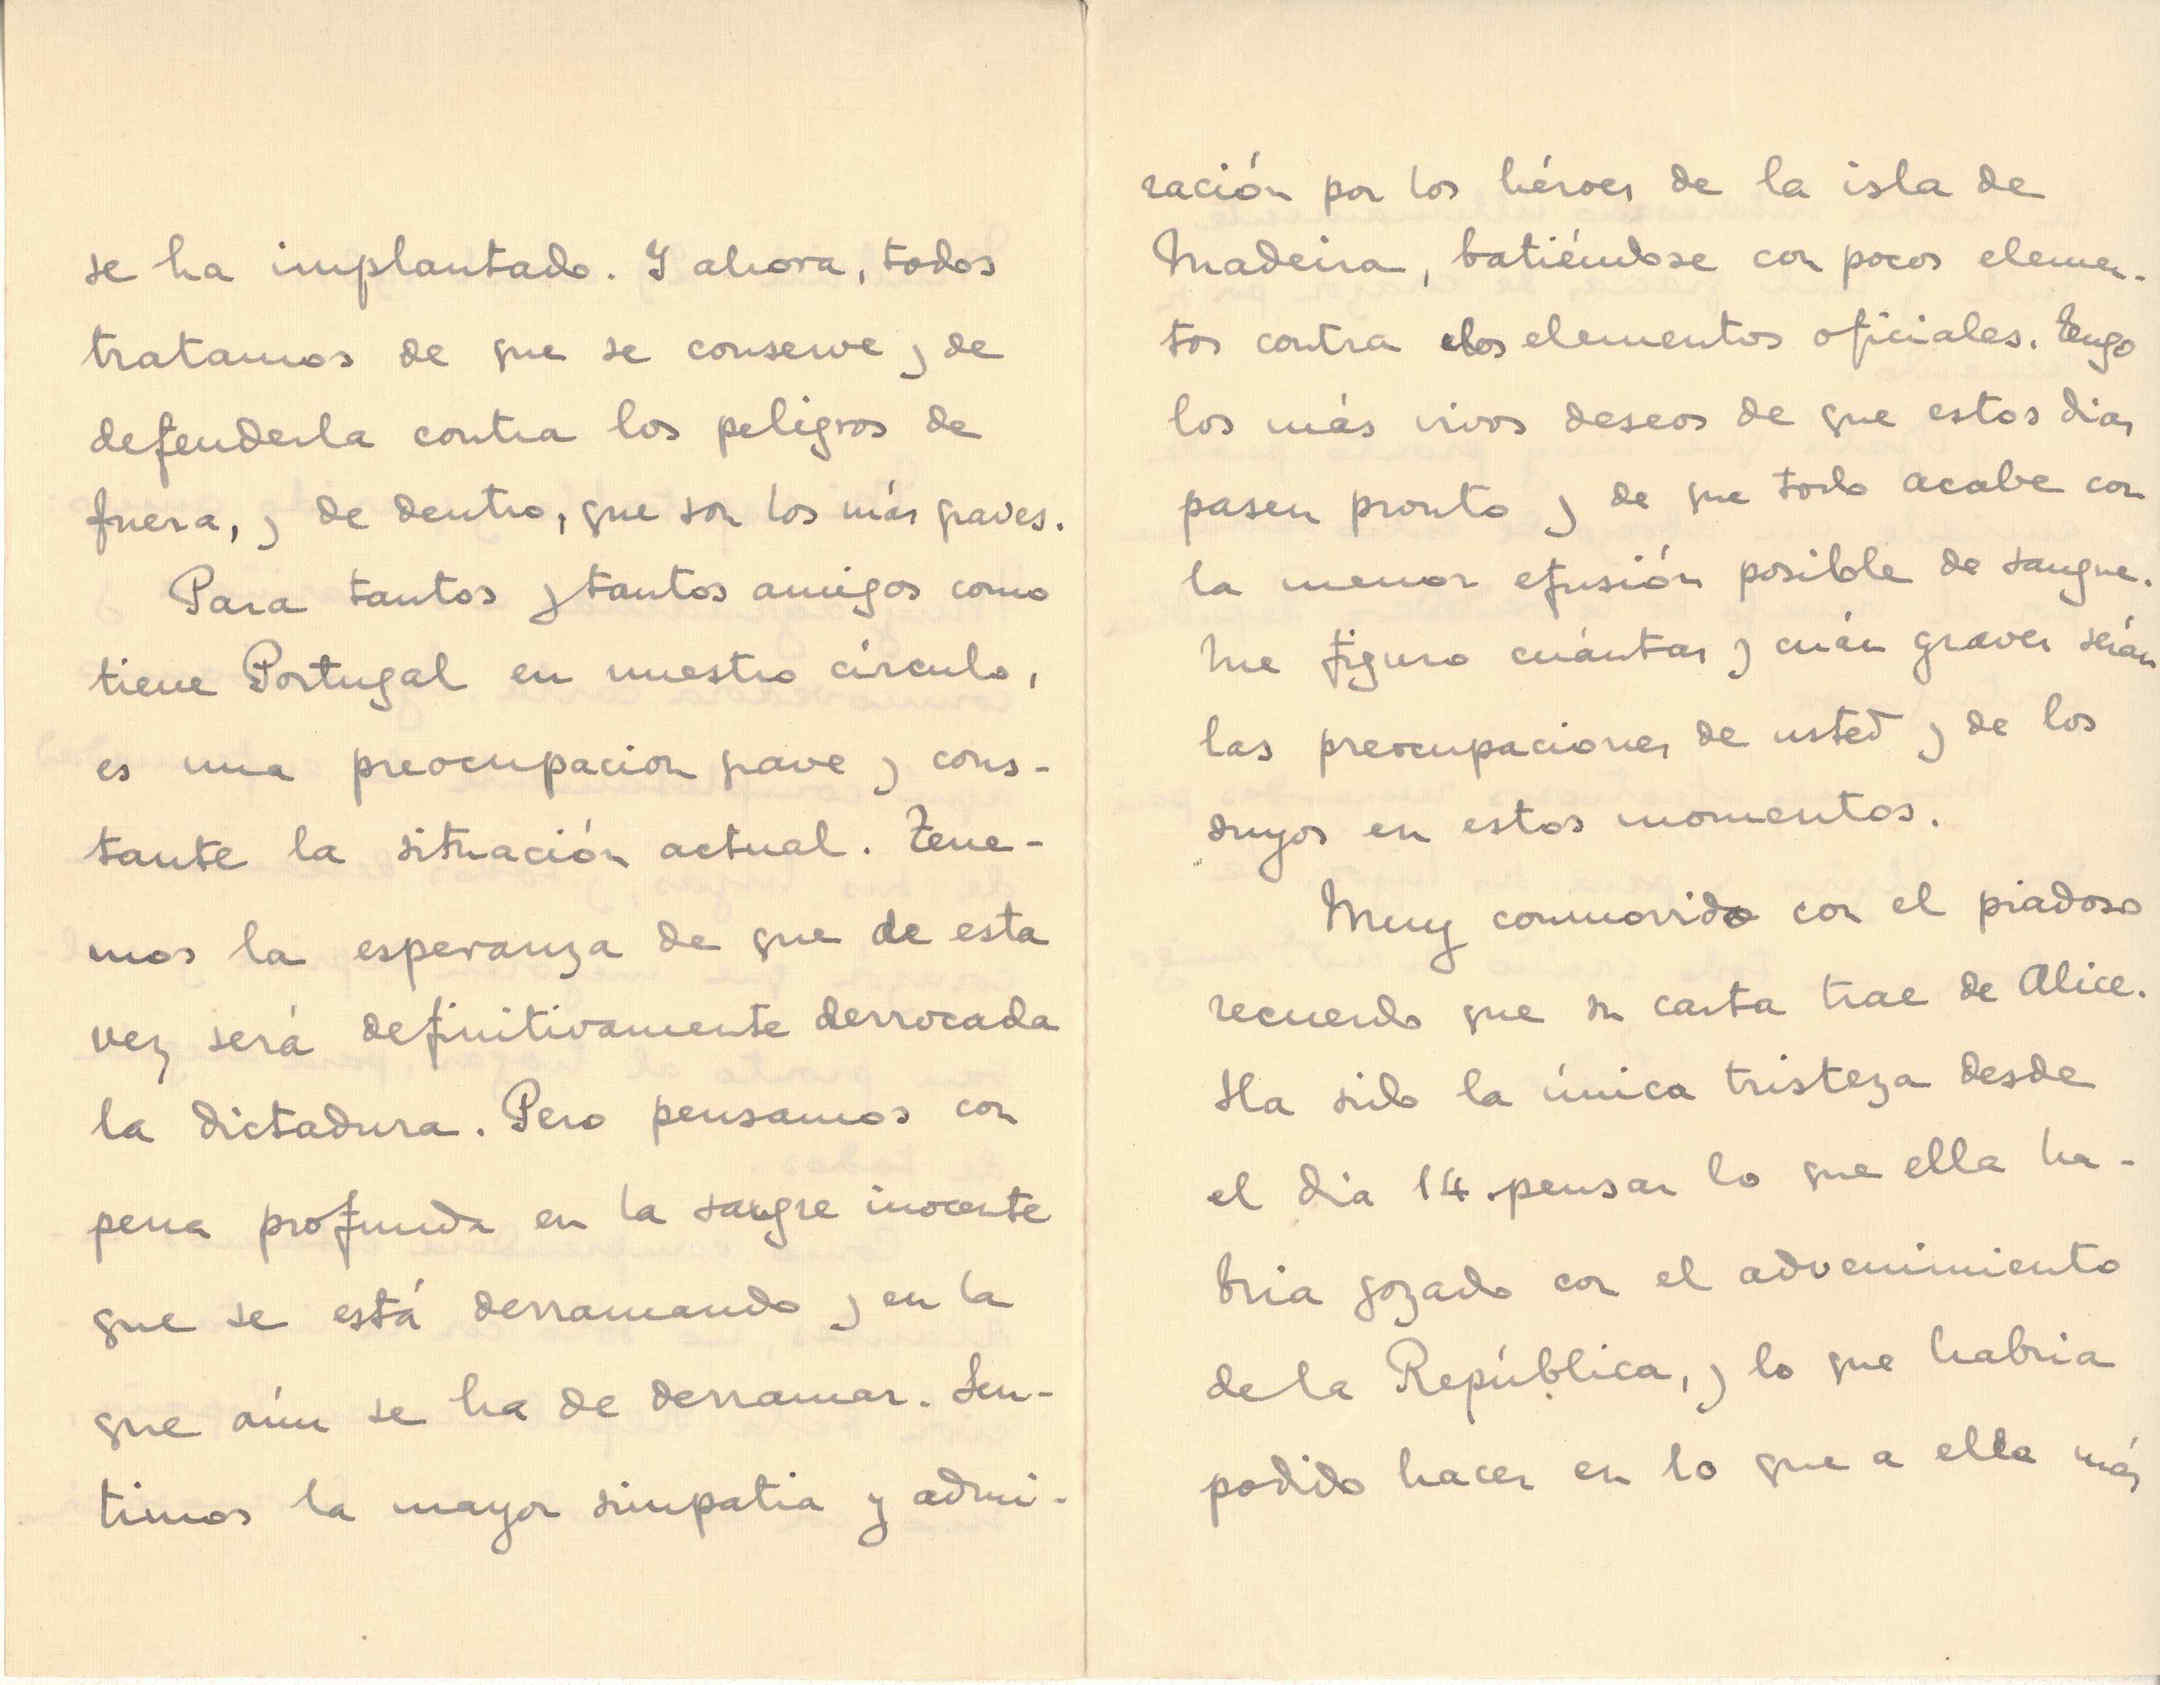 se ha implantado. Y ahora, todos
tratamos de que se conserve y de
defenderla contra los peligros de
fuera, y de dentro, que son los más graves.
Para tantos y tantos amigos como
tiene Portugal en nuestro círculo,
es una preocupacion grave y cons-
tante la situación actual. Tene-
mos la esperanza de que de esta
vez será definitivamente derrocada
la dictadura. Pero pensamos con
pena profunda en la sangre inocente
que se está derramando y en la
que aún se ha de derramar. Sen-
timos la mayor simpatia y admi-
ración por los héroes de la isla de
Madeira, batiéndose con pocos elemen-
tos contra los elementos oficiales. Tengo
los más vivos deseos de que estos dias
pasen pronto y de que todo acabe con
la menor efusión posible de sangre.
Me figuro cuántas y cuán graves serán
las preocupaciones de usted y de los
suyos en estos momentos.
Muy conmovido con el piadoso
recuerdo que su carta trae de Alice.
Ha sido la única tristeza desde
el dia 14 pensar lo que ella ha-
bria gozado con el advenimiento
de la República, y lo que habria
podido hacer en lo que a ella más